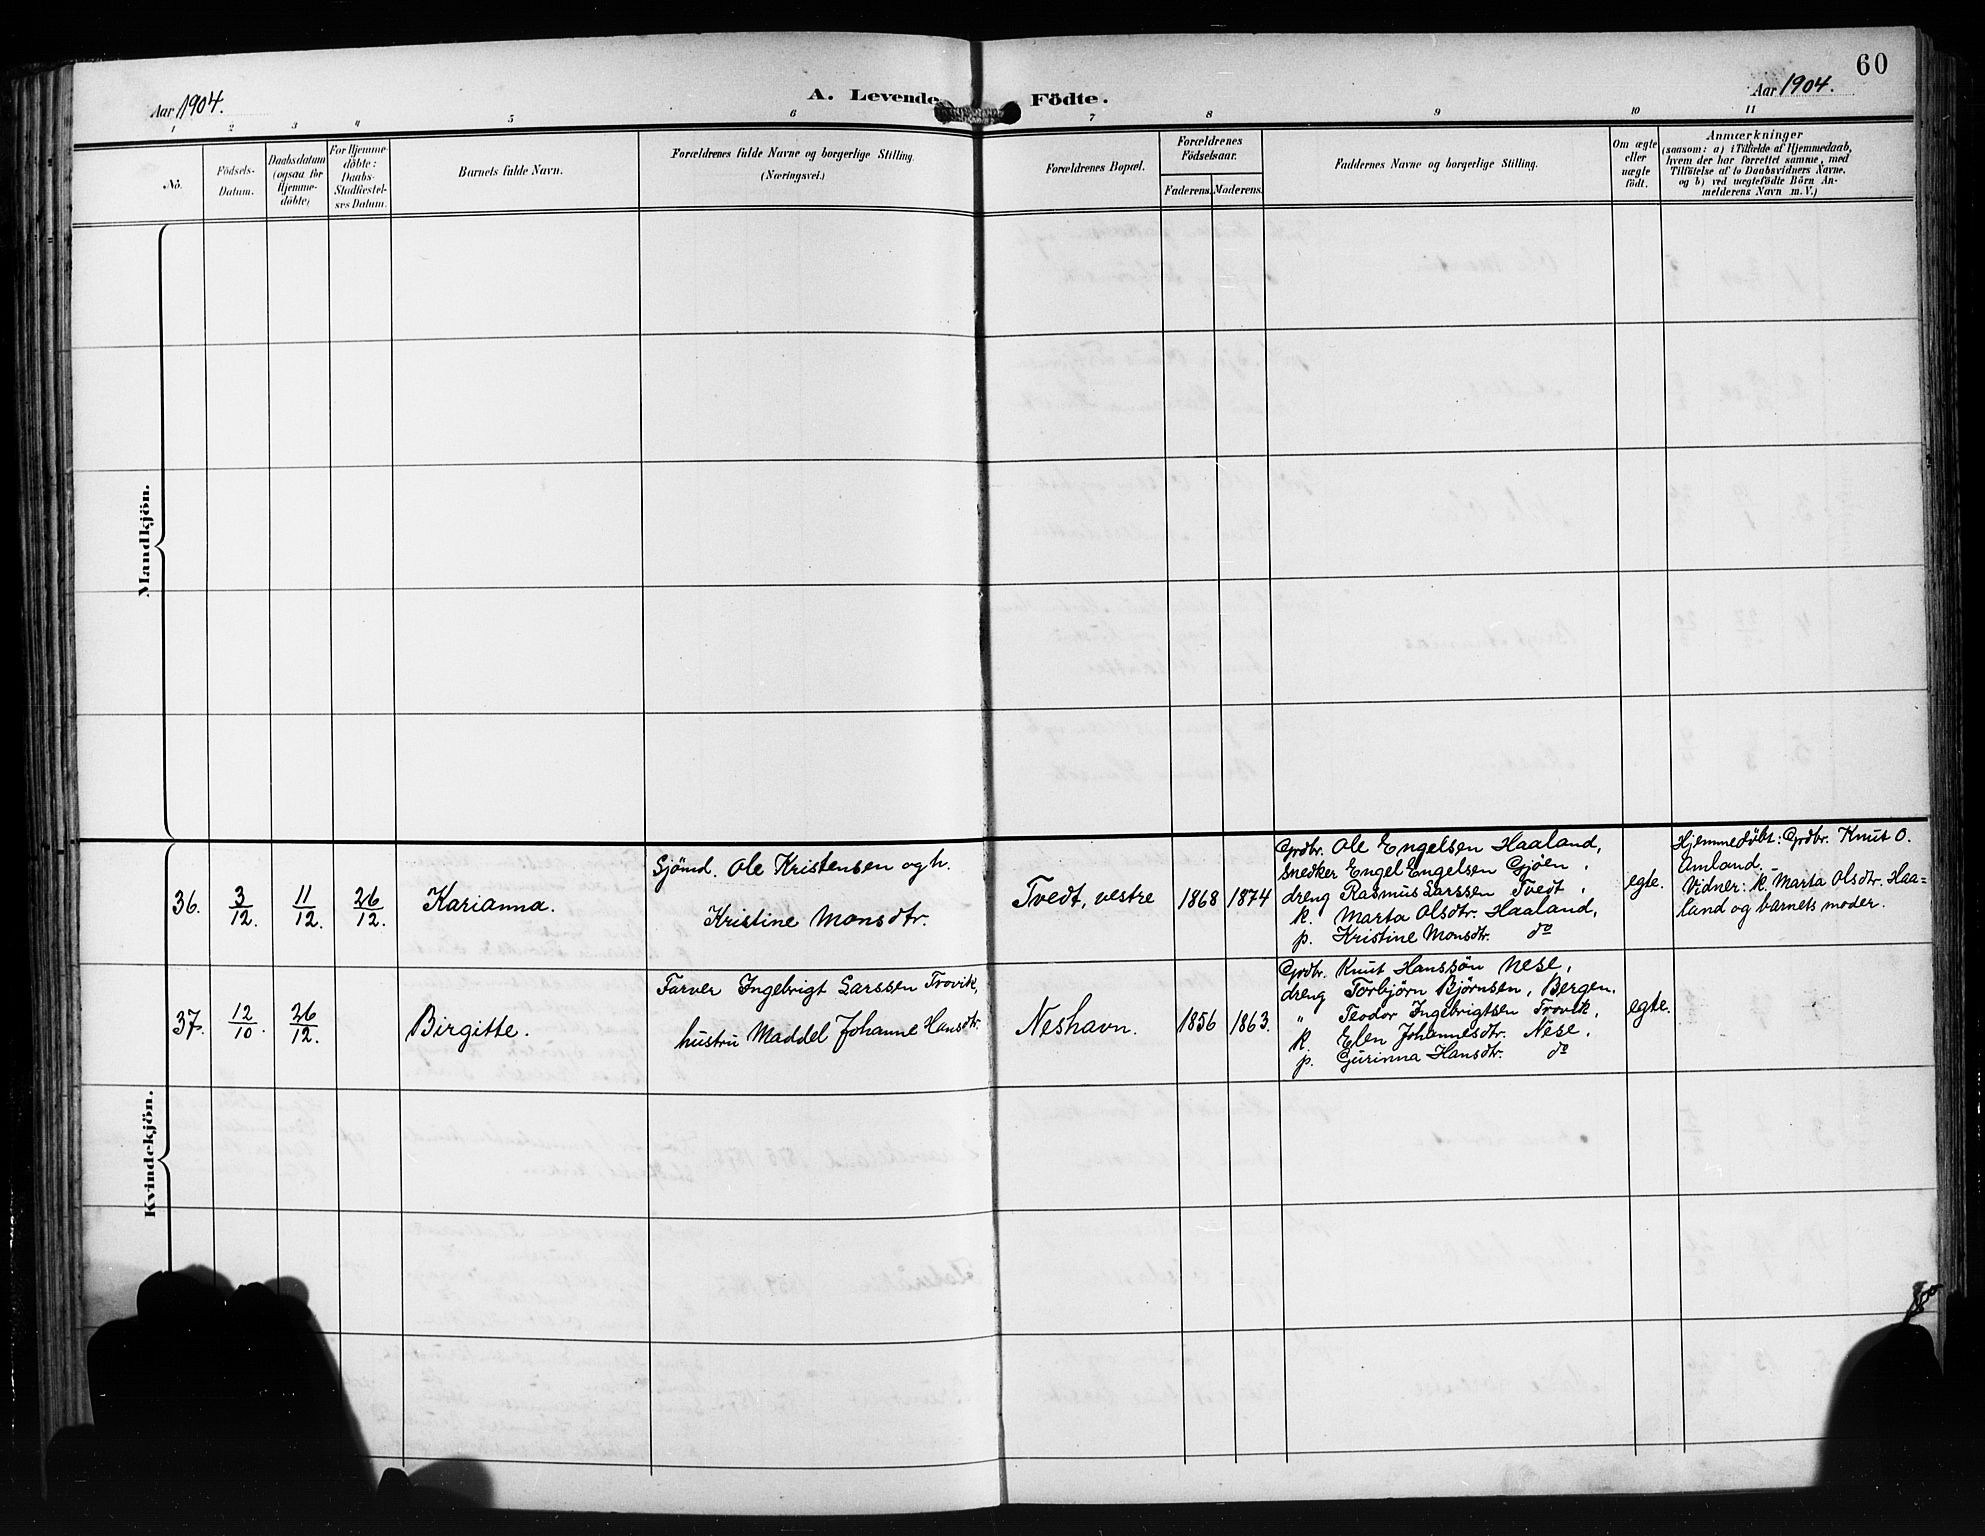 60
Aar 1904.
A. Levende Födte.
Aar 1904.
1 2 3 4 5 6 7 8 9 10 11
No.
Födsels-
Datum.
Daabsdatum
(ogsaa for
Hjemme-
döbte)
For Hjemme-
döbte:
Daabs-
Stadfæstel-
ses Datum.
Barnets fulde Navn.
Forældrenes fulde Navne og borgerlige Stilling.
(Næringsvei.)
Forældrenes Bopæl.
Forældrenes
Födselsaar.
Faderens. Moderens.
Faddernes Navne og borgerlige Stilling.
Om ægte
eller
uægte
födt.
Anmærkninger
(saasom: a) i Tilfælde af Hjemmedaab,
hvem der har forrettet samme, med
Tilföielse af to Daabsvidners Navne,
og b) ved uægtefödte Börn An-
melderens Navn m. V.)
Mandkjön.
Kvindekjön.
36.
3/12.
11/12.
26/12.
Karianna.
Sjömd. Ole Kristensen og h.
Kristine Monsdtr.
Tvedt, vestre
1868
1874
Grdbr. Ole Engelsen Haaland,
Snedker Engel Engelsen Gjöen,
dreng Rasmus Larssen Tvedt,
k. Marta Olsdtr. Haaland,
p. Kristine Monsdtr. do
egte.
Hjemmedöbt: Grdbr. Knut O.
Amland.
Vidner: k. Marta Olsdtr. Haa=
land og barnets moder.
37.
12/10.
26/12.
Birgitte.
Farver Ingebrigt Larssen Trovik,
hustru Maddel Johanne Hansdtr.
Neshavn.
1856
1863.
Grdbr. Knut Hanssön Nese,
dreng Torbjörn Björnsen, Bergen.
" Teodor Ingebrigtsen Trovik,
k. Elen Johannesdtr. Nese,
p. Gurinna Hansdtr. do
egte.